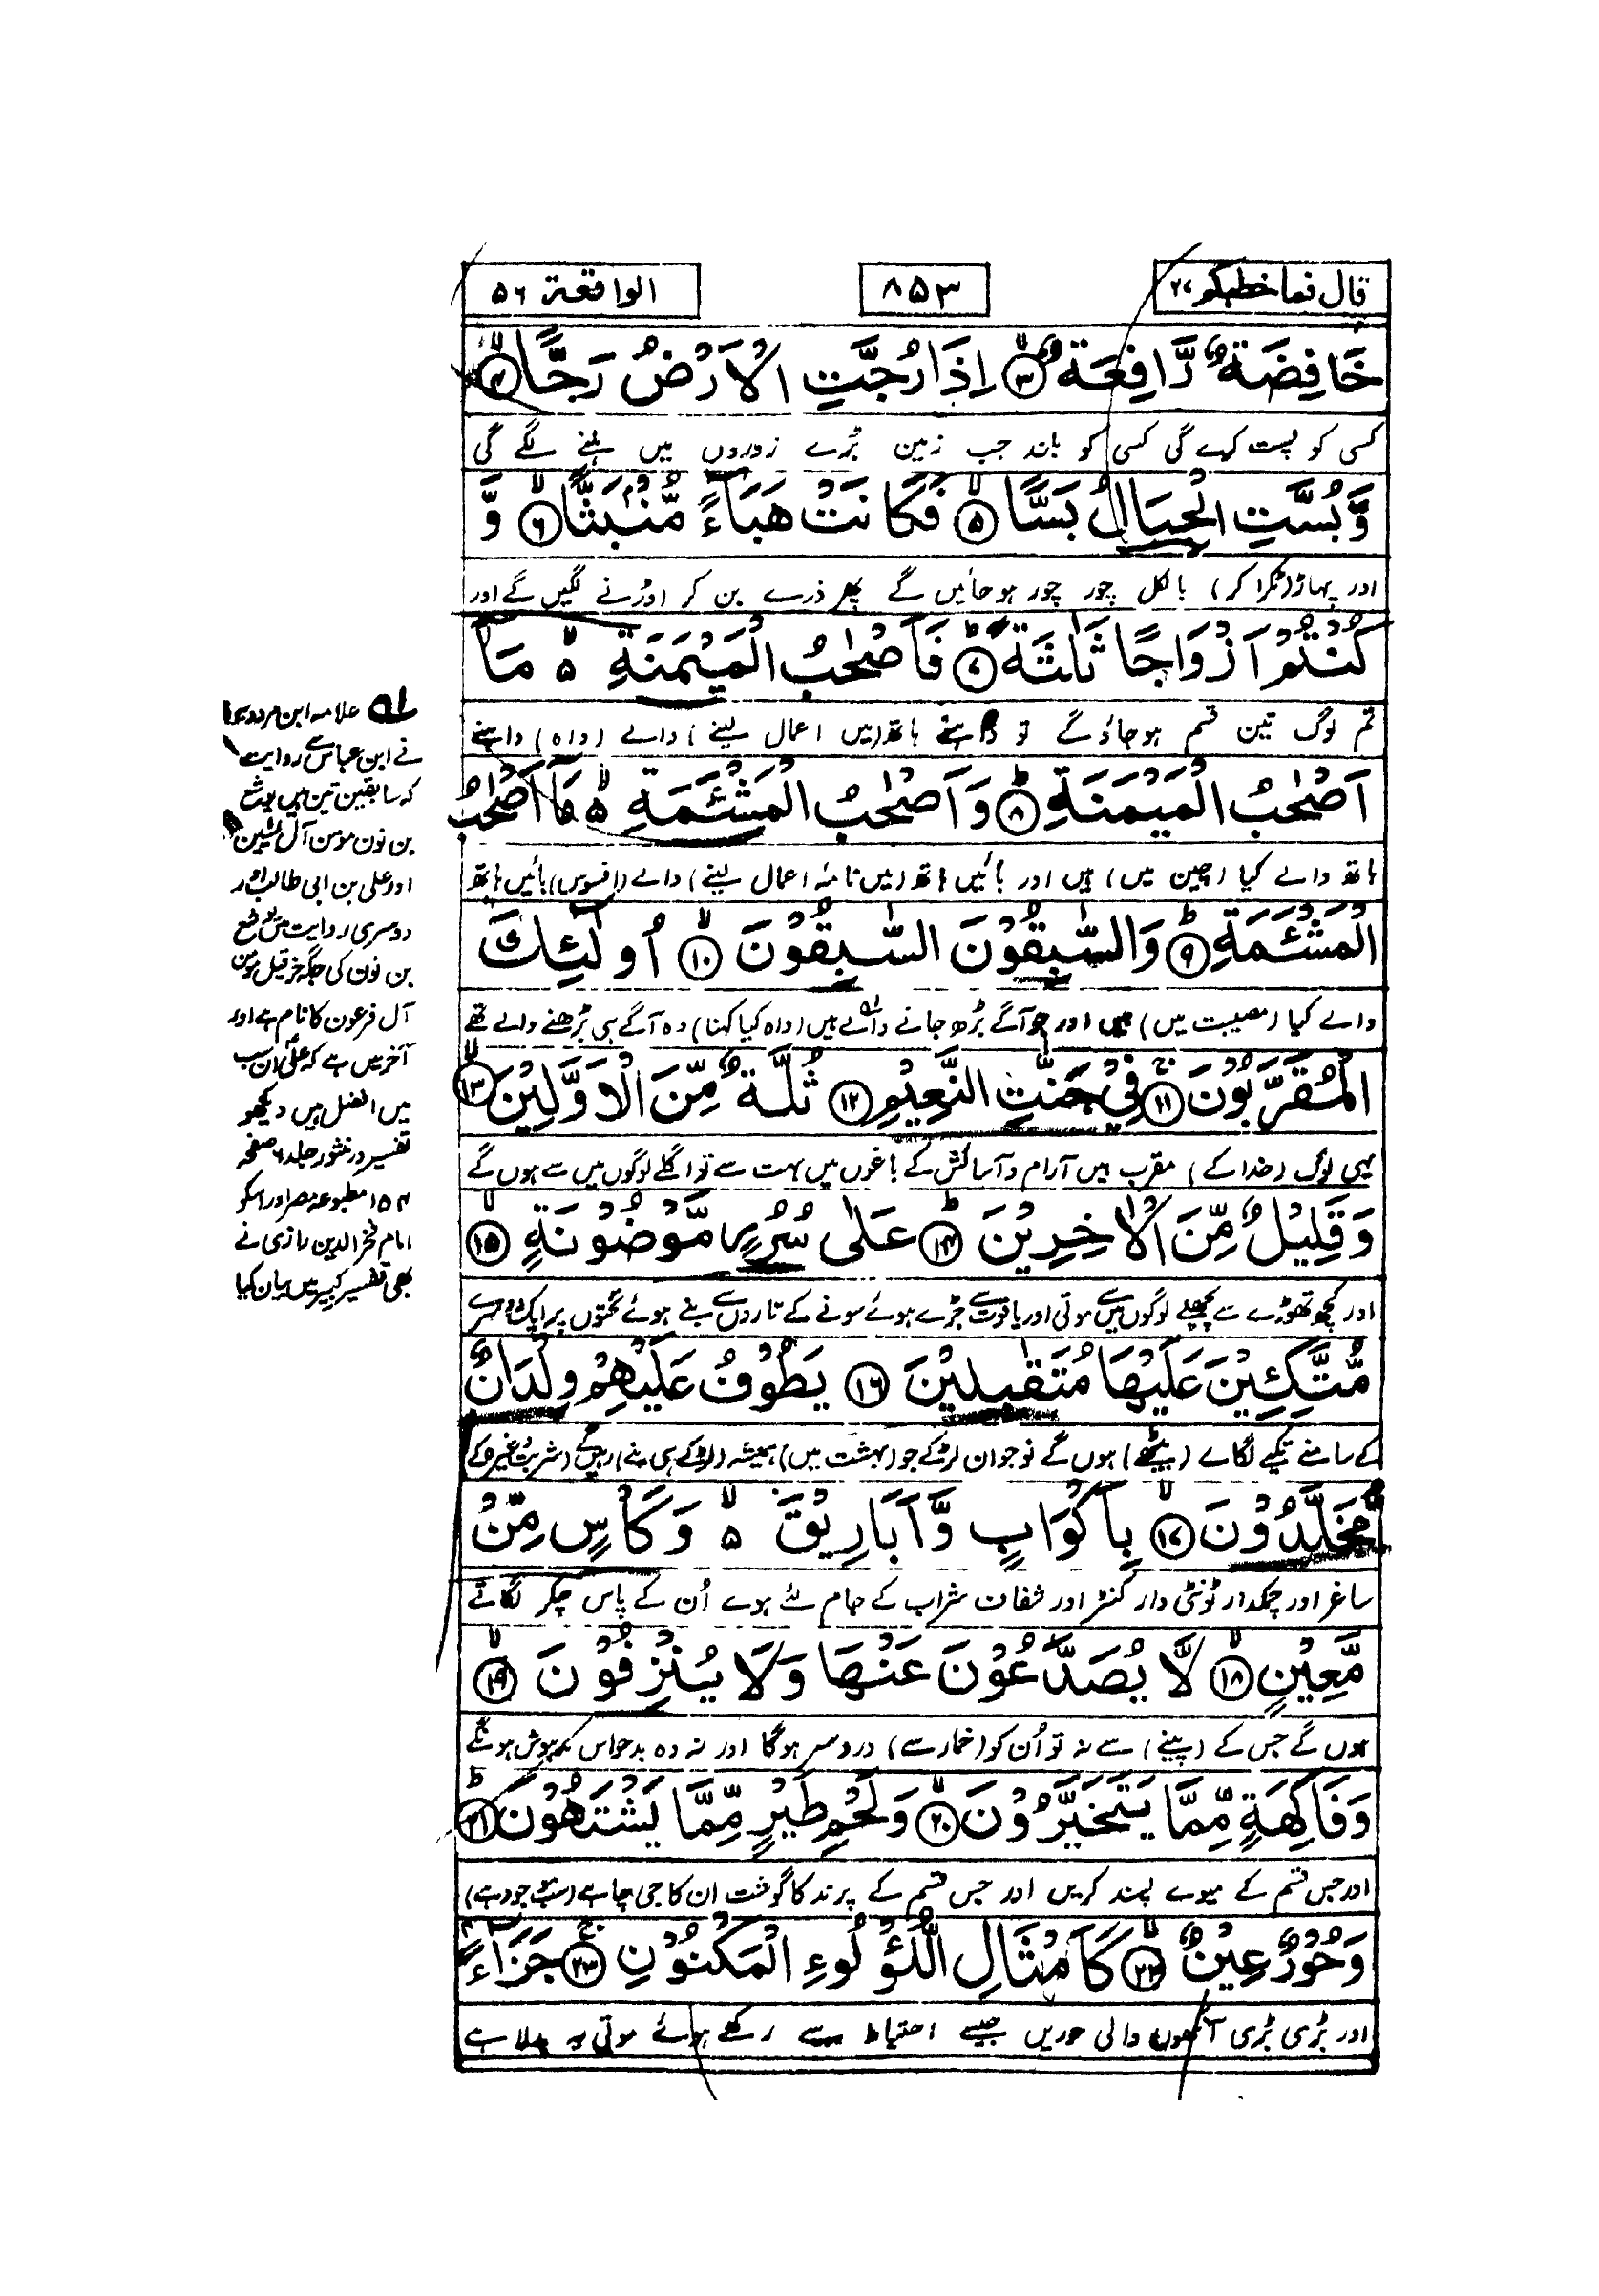 قال فما خطبکم ۲۷
۸۵۳
الواقعۃ ۵۶
خَافِضَةٌ رَّافِعَةٌ ۙ﴿۳﴾ اِذَا رُجَّتِ الْاَرْضُ رَجًّا ۙ﴿۴﴾
کسی کو پست کرے گی کسی کو بلند جب زمین بڑے زوروں میں ہلنے لگے گی
وَّبُسَّتِ الْجِبَالُ بَسًّا ۙ﴿۵﴾ فَكَانَتْ هَبَآءً مُّنْۢبَثًّا ۙ﴿۶﴾ وَّ
اور پہاڑ (ٹکرا کر) بالکل چور چور ہو جائیں گے پھر ذرے بن کر اوڑنے لگیں گے اور
كُنْتُمْ اَزْوَاجًا ثَلٰثَةً ؕ﴿۷﴾ فَاَصْحٰبُ الْمَيْمَنَةِ ۙ۵ مَاۤ
تم لوگ تین قسم ہو جاؤ گے تو داہنے ہاتھ (میں اعمال لینے) والے (واہ) داہنے
اَصْحٰبُ الْمَيْمَنَةِ ؕ﴿۸﴾ وَاَصْحٰبُ الْمَشْئَمَةِ ۙ۵ مَاۤ اَصْحٰبُ
ہاتھ والے کیا (چین میں) ہیں اور بائیں ہاتھ (میں نامۂ اعمال لینے) والے (افسوس) بائیں ہاتھ
الْمَشْئَمَةِ ؕ﴿۹﴾ وَالسّٰبِقُوْنَ السّٰبِقُوْنَ ۙ﴿۱۰﴾ اُولٰٓئِكَ
والے کیا (مصیبت میں) ہیں اور جو آگے بڑھ جانے والے ہیں (واہ کیا کہنا) وہ آگے ہی بڑھنے والے تھے
الْمُقَرَّبُوْنَ ۚ﴿۱۱﴾ فِيْ جَنّٰتِ النَّعِيْمِ ﴿۱۲﴾ ثُلَّةٌ مِّنَ الْاَوَّلِيْنَ ۙ﴿۱۳﴾
یہی لوگ (خدا کے) مقرب ہیں آرام و آسائش کے باغوں میں بہت سے تو اگلے لوگوں میں سے ہوں گے
وَقَلِيْلٌ مِّنَ الْاٰخِرِيْنَ ؕ﴿۱۴﴾ عَلٰى سُرُرٍ مَّوْضُوْنَةٍ ۙ﴿۱۵﴾
اور کچھ تھوڑے سے پچھلے لوگوں میں سے موتی اور یاقوت سے جڑے ہوئے سونے کے تاروں سے بنے ہوئے تختوں پر ایک دوسرے
مُّتَّكِئِيْنَ عَلَيْهَا مُتَقٰبِلِيْنَ ﴿۱۶﴾ يَطُوْفُ عَلَيْهِمْ وِلْدَانٌ
کے سامنے تکیے لگائے (بیٹھے) ہوں گے نوجوان لڑکے جو (بہشت میں) ہمیشہ (لڑکے ہی بنے) رہیں گے (شربت وغیرہ کے)
مُّخَلَّدُوْنَ ۙ﴿۱۷﴾ بِاَكْوَابٍ وَّاَبَارِيْقَ ۙ۵ وَكَاْسٍ مِّنْ
ساغر اور چمکدار ٹونٹی دار کنٹر اور شفاف شراب کے جام لئے ہوے اُن کے پاس چکر لگاتے
مَّعِيْنٍ ۙ﴿۱۸﴾ لَّا يُصَدَّعُوْنَ عَنْهَا وَلَا يُنْزِفُوْنَ ۙ﴿۱۹﴾
ہوں گے جس کے (پینے) سے نہ تو اُن کو (خمار سے) درد سر ہوگا اور نہ وہ بدحواس مدہوش ہونگے
وَفَاكِهَةٍ مِّمَّا يَتَخَيَّرُوْنَ ۙ﴿۲۰﴾ وَلَحْمِ طَيْرٍ مِّمَّا يَشْتَهُوْنَ ؕ﴿۲۱﴾
اور جس قسم کے میوے پسند کریں اور جس قسم کے پرند کا گوشت ان کا جی چاہے (سب موجود ہے)
وَحُوْرٌ عِيْنٌ ۙ﴿۲۲﴾ كَاَمْثَالِ اللُّؤْلُوءِ الْمَكْنُوْنِ ۚ﴿۲۳﴾ جَزَآءً
اور بڑی بڑی آنکھوں والی حوریں جیسے احتیاط سے رکھے ہوئے موتی یہ بدلا ہے
۱ھ علامہ ابن مردویہ
نے ابن عباس سے روایت
کہ سابقین تین ہیں یوشع
بن نون مومن آل یٰسین
اور علی بن ابی طالب اور
دوسری روایت میں یوشع
بن نون کی جگہ حزقیل مومن
آل فرعون کا نام ہے اور
آخر میں ہے کہ علیؑ ان سب
میں افضل ہیں دیکھو
تفسیر در منثور جلد ۶ صفحہ
۱۵۴ مطبوعہ مصر اور اسکو
امام فخر الدین رازی نے
بھی تفسیر کبیر میں بیان کیا